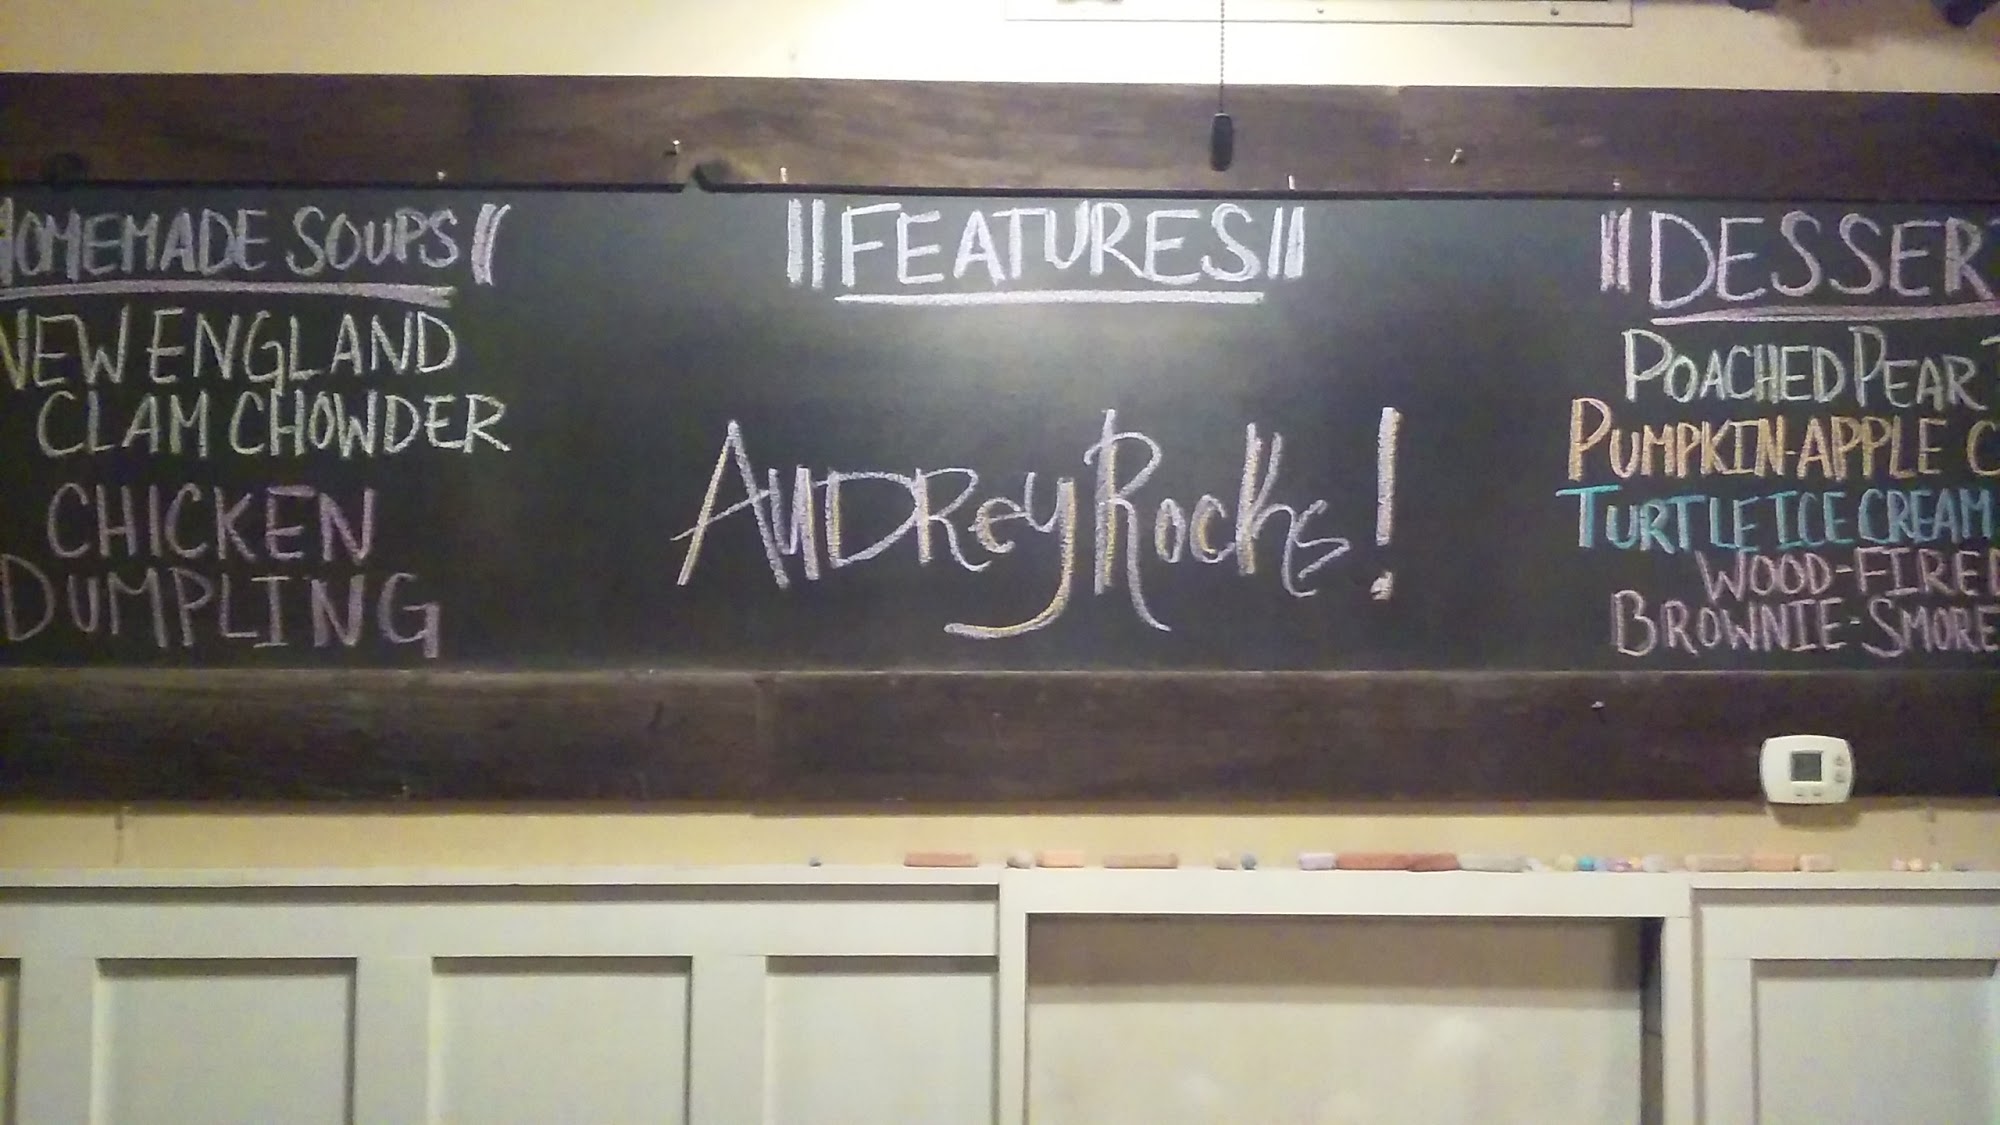 HOMEMADE SOUPS
NEW ENGLAND
CLAM CHOWDER
CHICKEN
DUMPLING
FEATURES
AUDREY ROCKS!
DESSERT
POACHED PEAR
PUMPKIN-APPLE C
TURTLE ICE CREAM
WOOD-FIRED
BROWNIE-SMORE